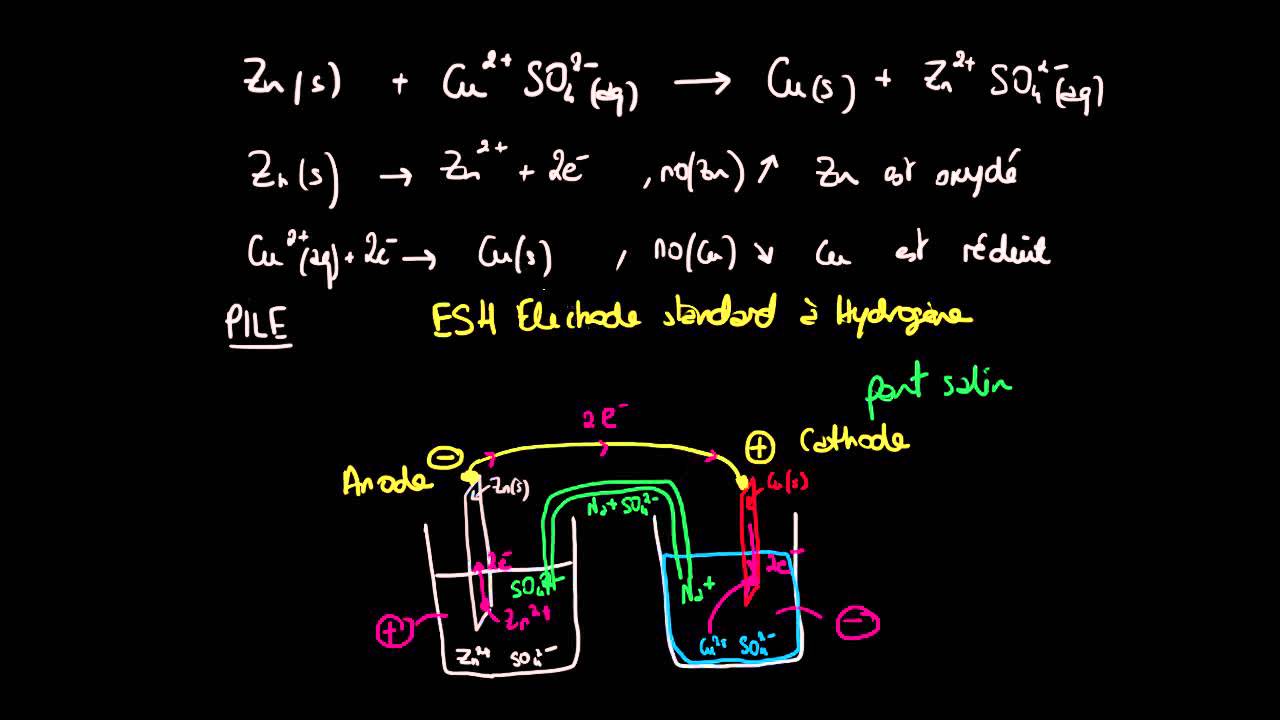 Zn(s) + Cu²⁺ SO₄²⁻(aq) → Cu(s) + Zn²⁺ SO₄²⁻(aq)
Zn(s) → Zn²⁺ + 2e⁻ , no(Zn) ↗ Zn est oxydé
Cu²⁺(aq) + 2e⁻ → Cu(s) , no(Cu) ↘ Cu est réduit
PILE
ESH Electrode standard à Hydrogène
pont salin
2e⁻
Anode ⊖
⊕ Cathode
Zn(s)
Cu(s)
Na⁺ SO₄²⁻
2e⁻
SO₄²⁻
Na⁺
2e⁻
Zn²⁺
⊕
⊖
Zn²⁺ SO₄²⁻
Cu²⁺ SO₄²⁻